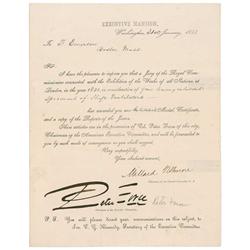 EXECUTIVE MANSION,
Washington, 21st January, 1853
To F. Emerson
Boston Mass
Sir:
I have the pleasure to inform you that a Jury of the Royal Commissioners connected with the Exhibition of the Works of all Nations, at London, in the year 1851,
specimens of Ships Ventilators
has awarded you the Medal, Certificate, and a copy of the Reports of the Jurors.
These articles are in the possession of Col. Peter Force of this city, Chairman of the American Executive Committee, and will be forwarded to you by such mode of conveyance as you shall direct.
Very respectfully,
Your obedient servant,
Millard Fillmore
Peter Force
P. S. You will please direct your communications on this subject, to Jos. C. G. Kennedy, Secretary of the Executive Committee.